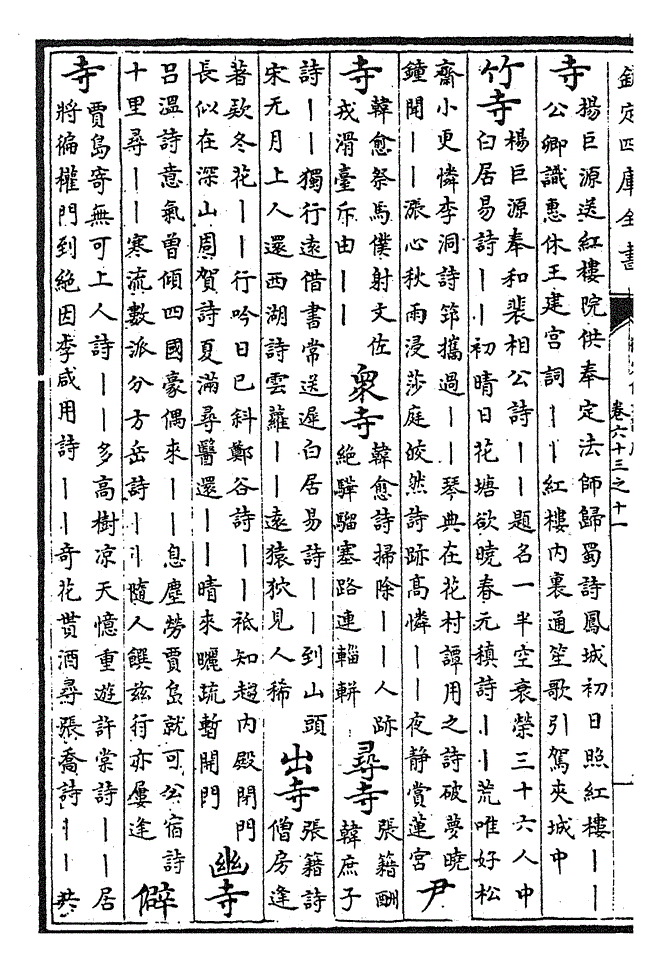 欽定四庫全書 卷六十三之十一
寺
揚巨源送紅樓院供奉定法師歸蜀詩鳳城初日照紅樓丨丨
公卿識惠休王建宮詞丨丨紅樓內裏通笙歌引駕夾城中
竹寺
楊巨源奉和裴相公詩丨丨題名一半空衰榮三十六人中
白居易詩丨丨初晴日花塘欲曉春元稹詩丨丨荒唯好松
齋小更憐李洞詩筇攜過丨丨琴典在花村譚用之詩破夢曉
鐘聞丨丨漲心秋雨浸莎庭皎然詩跡高憐丨丨夜靜賞蓮宮
尹
寺
韓愈祭馬僕射文佐
戎滑臺斥由丨丨
衆寺
韓愈詩掃除丨丨人跡
絶驊騮塞路連輜軿
尋寺
張籍酬
韓庶子
詩丨丨獨行遠借書常送遲白居易詩丨丨到山頭
宋无月上人還西湖詩雲蘿丨丨遠猿狖見人稀
出寺
張籍詩
僧房逢
著欵冬花丨丨行吟日已斜鄭谷詩丨丨祗知趨內殿閉門
長似在深山周賀詩夏滿尋醫還丨丨晴來曬疏暫開門
幽寺
呂溫詩意氣曾傾四國豪偶來丨丨息塵勞賈島就可公宿詩
十里尋丨丨寒流數派分方岳詩丨丨隨人饌兹行亦屢逢
僻
寺
賈島寄無可上人詩丨丨多高樹凉天憶重遊許棠詩丨丨居
將徧權門到絶因李咸用詩丨丨奇花貰酒尋張喬詩丨丨共